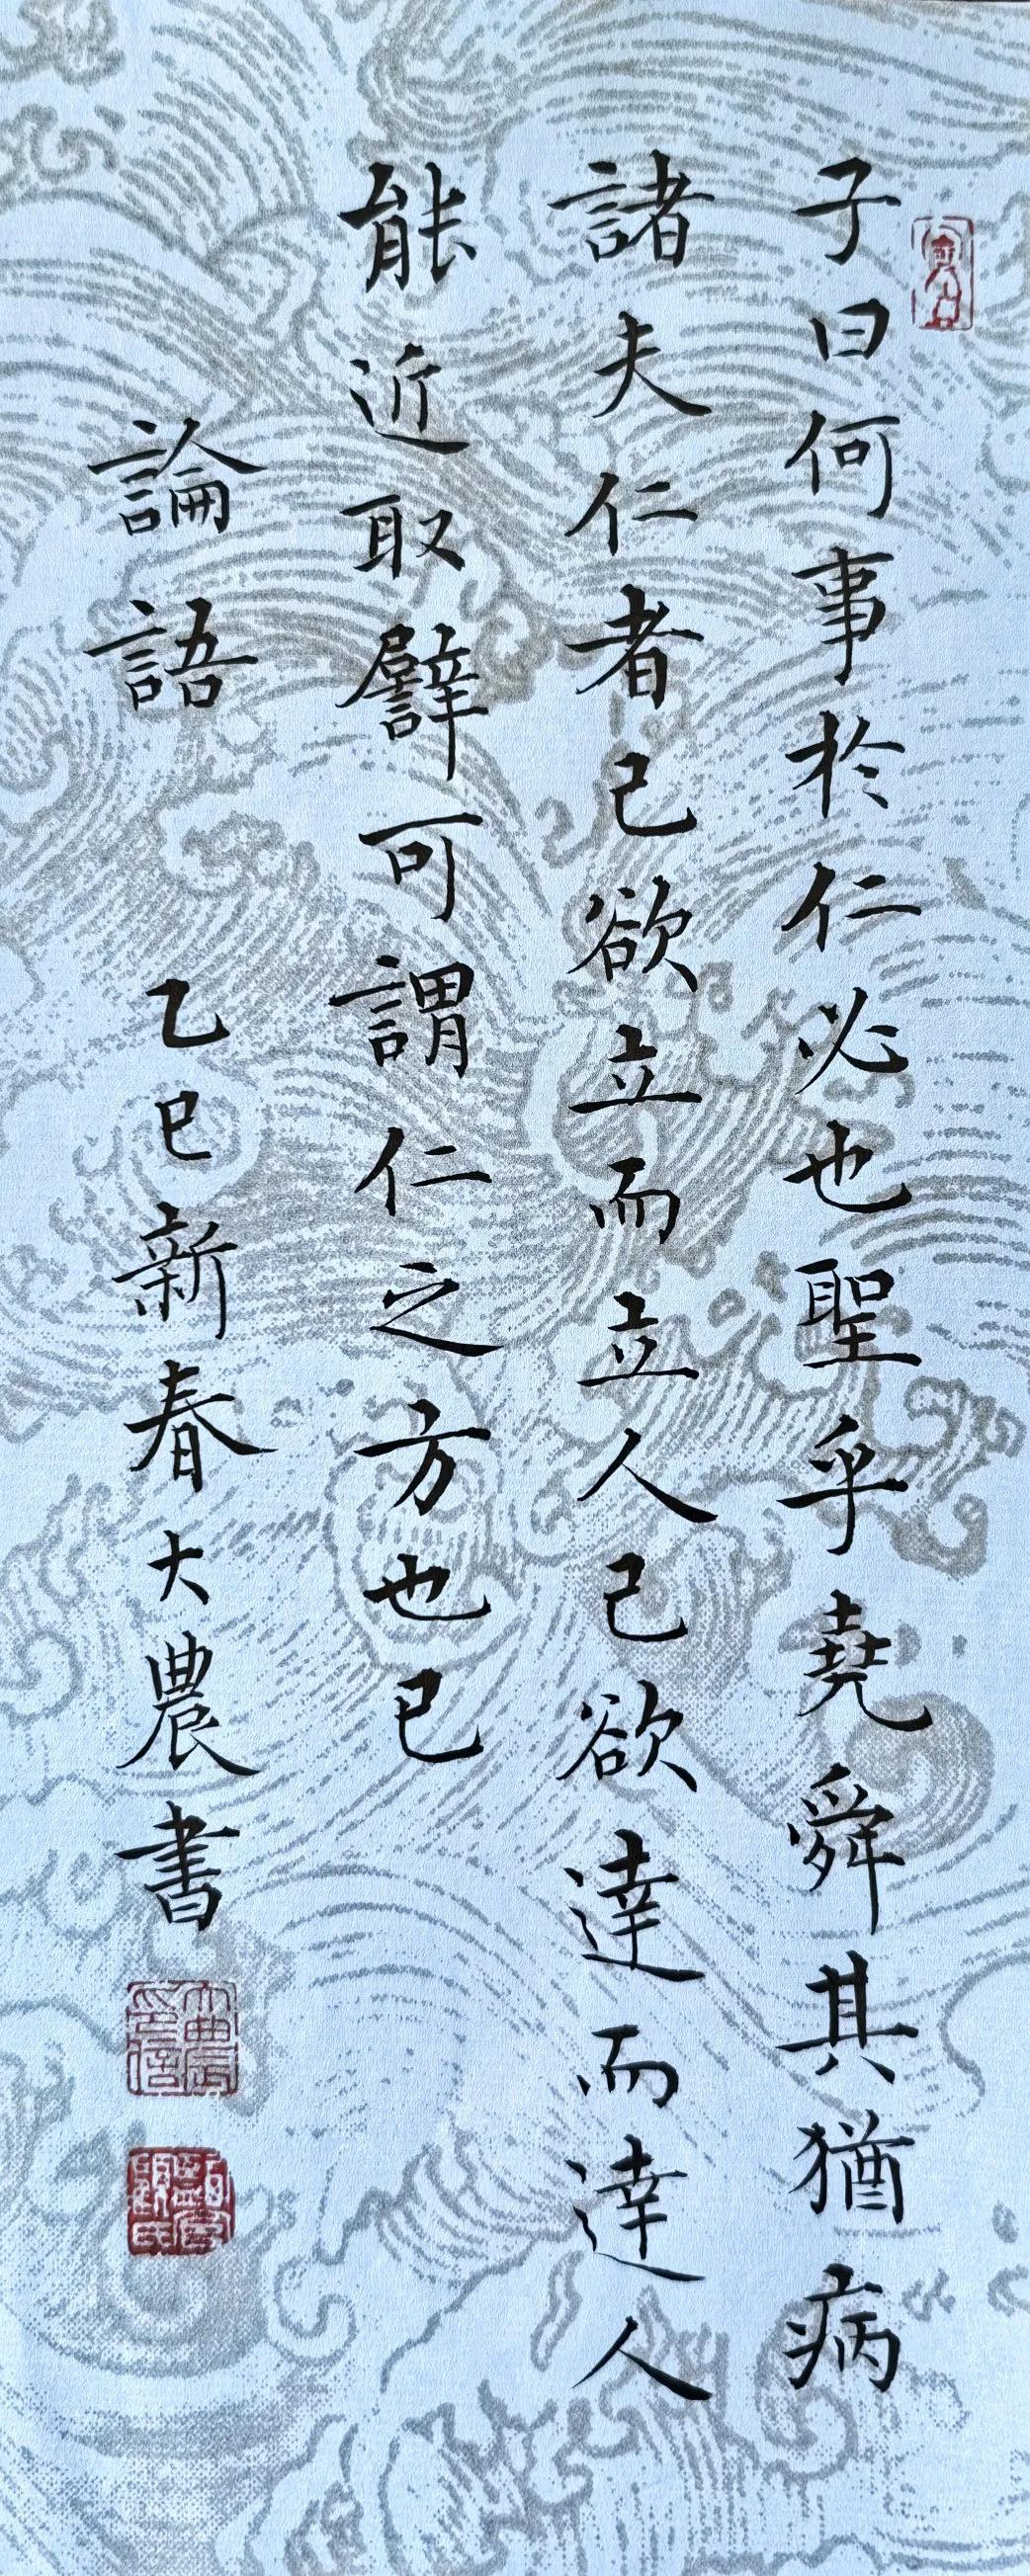 子曰何事於仁必也聖乎堯舜其猶病
諸夫仁者己欲立而立人己欲達而達人
能近取譬可謂仁之方也已
論語 乙巳新春大農書
大農印信